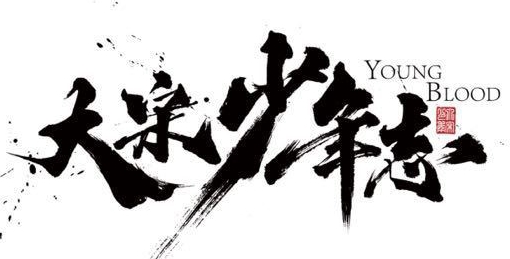 大宋少年志
YOUNG
BLOOD